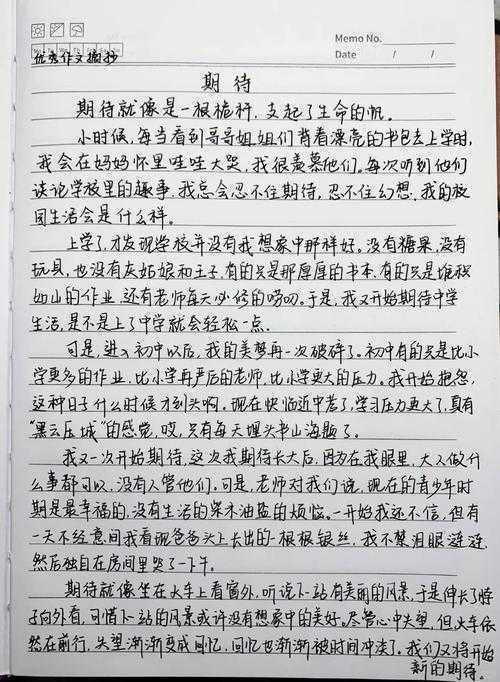 Memo No.
Mo Tu We Th Fr Sa Su
Date / /
优秀作文摘抄
期待
期待就像是一根桅杆，支起了生命的帆。
小时候，每当看到哥哥姐姐们背着漂亮的书包去上学时，
我会在妈妈怀里哇哇大哭，我很羡慕他们。每次听到他们
谈论学校里的趣事，我总会忍不住期待，忍不住幻想，我的校
园生活会是什么样。
上学了，才发现学校并没有我想象中那样好。没有糖果，没有
玩具，也没有灰姑娘和王子，有的只是那厚厚的书本，有的只是堆积
如山的作业，还有老师每天必修的唠叨。于是，我又开始期待中学
生活，是不是上了中学就会轻松一点。
可是，进入初中以后，我的美梦再一次破碎了。初中有的只是比小
学更多的作业，比小学再严后的老师，比小学更大的压力。我开始抱怨，
这种日子什么时候才到头啊。现在快临近中考了，学习压力更大了，真有
“黑云压城”的感觉，哎，只有每天埋头书山海题了。
我又一次开始期待，这次我期待长大后，因为在我眼里，大人做什
么事都可以，没有人管他们。可是，老师对我们说，现在的青少年时
期是最幸福的，没有生活的柴木油盐的烦恼。一开始我还不信，但有
一天不经意间我看现爸爸头上长出的一根根银丝，我不禁泪眼涟涟，
然后独自在房间里哭了一下午。
期待就像坐在火车上看窗外，听说下一站有美丽的风景，于是伸长了脖
子向外看，可惜下一站的风景或许没有想象中的美好。尽管心中失望，但火车依
然在前行，失望渐渐变成回忆，回忆也渐渐被时间冲淡了。我们又将开始
新的期待。